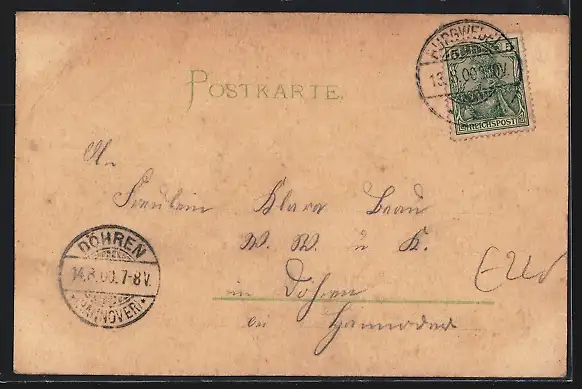 POSTKARTE.
REICHSPOST
An
Fräulein Klara Braun
W. W. u K.
in Döhren
bei Hannover
DÖHREN
14.8.00.7-8V.
(HANNOVER)